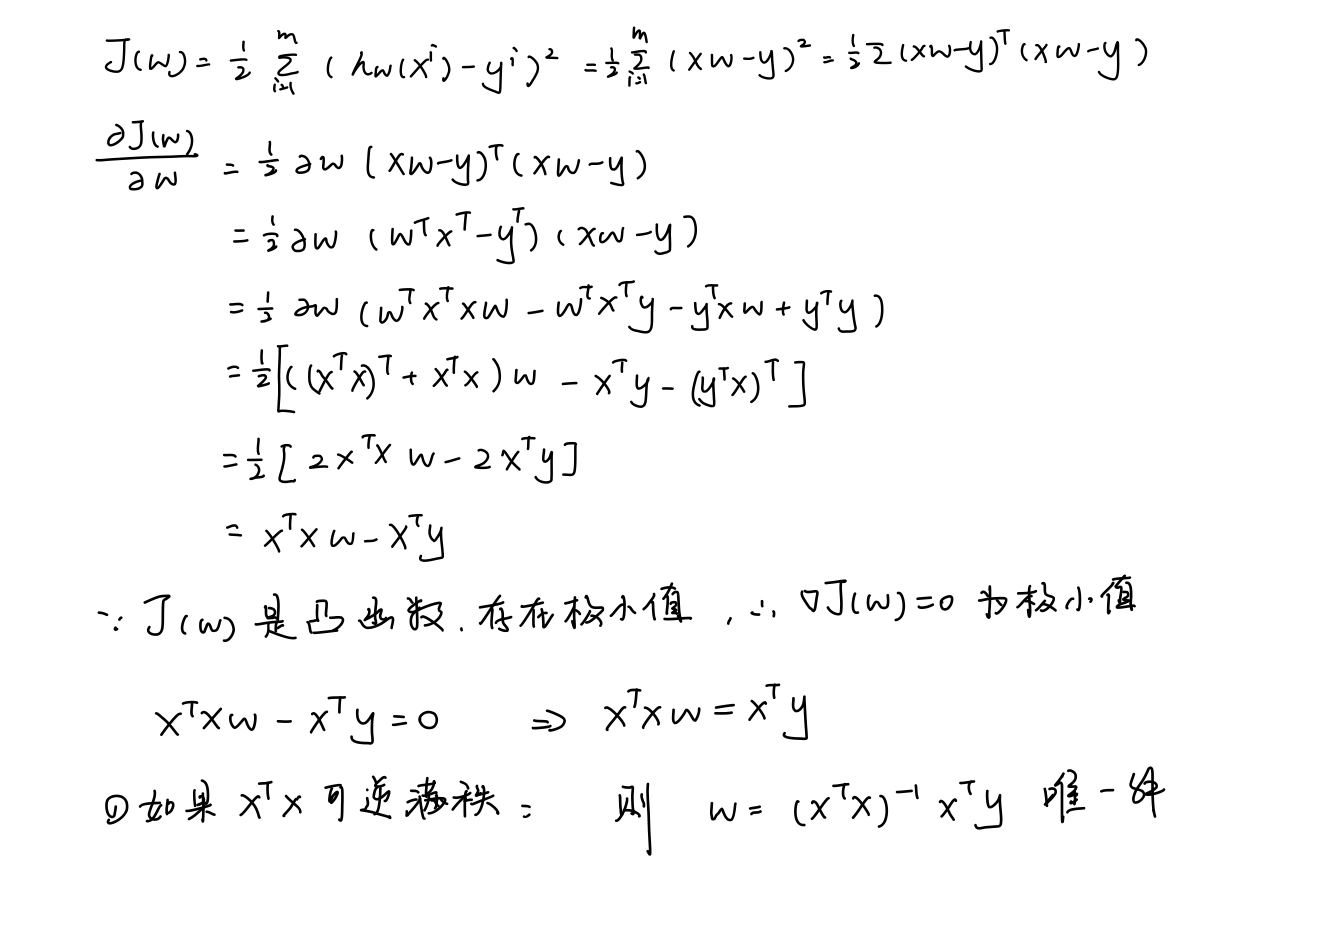 J(w) = 1/2 Σ_{i=1}^{m} (h_w(x^i) - y^i)^2 = 1/2 Σ_{i=1}^{m} (xw-y)^2 = 1/2 Σ (xw-y)^T (xw-y)
∂J(w)/∂w = 1/2 ∂w (xw-y)^T (xw-y)
= 1/2 ∂w (w^T x^T - y^T) (xw-y)
= 1/2 ∂w (w^T x^T x w - w^T x^T y - y^T x w + y^T y)
= 1/2 [((x^T x)^T + x^T x) w - x^T y - (y^T x)^T]
= 1/2 [2 x^T x w - 2 x^T y]
= x^T x w - x^T y
∵ J(w) 是凸函数. 存在极小值, ∴ ∇J(w) = 0 为极小值
x^T x w - x^T y = 0 ⇒ x^T x w = x^T y
① 如果 x^T x 可逆满秩: 则 w = (x^T x)^{-1} x^T y 唯一解